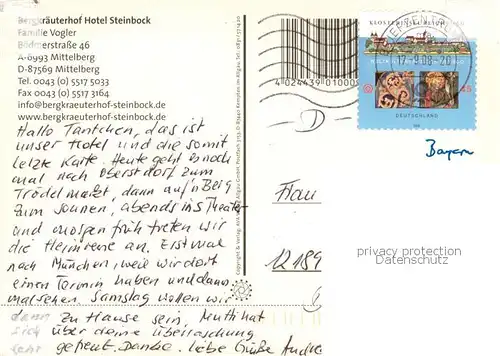 Bergkräuterhof Hotel Steinbock
Familie Vogler
Bödmerstraße 46
A-6993 Mittelberg
D-87569 Mittelberg
Tel. 0043 (0) 5517 5033
Fax 0043 (0) 5517 3164
info@bergkraeuterhof-steinbock.de
www.bergkraeuterhof-steinbock.de
Hallo Tantchen, das ist
unser Hotel und die somit
letzte Karte. Heute geht es noch
mal nach Oberstdorf zum
Trödelmarkt, dann auf'n Berg
zum Sonnen, abends ins Theater
und morgen früh treten wir
die Heimreise an. Erst mal
nach München, weil wir dort
einen Termin haben und dann
mal sehen. Samstag wollen wir
dann zu Hause sein. Mutti hat
sich über deine Überraschung
sehr gefreut. Danke. Liebe Grüße Andrea
4 024439 01000
17.-9.08-20
45
DEUTSCHLAND
Bayern
Frau
12189
privacy protection
Datenschutz